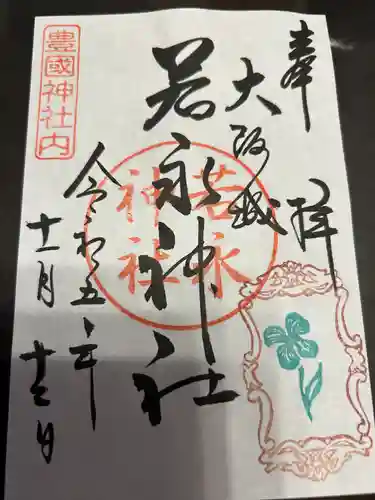 奉拝
大阪城
若永神社
若永
神社
豊國神社内
令和五年
十一月十二日